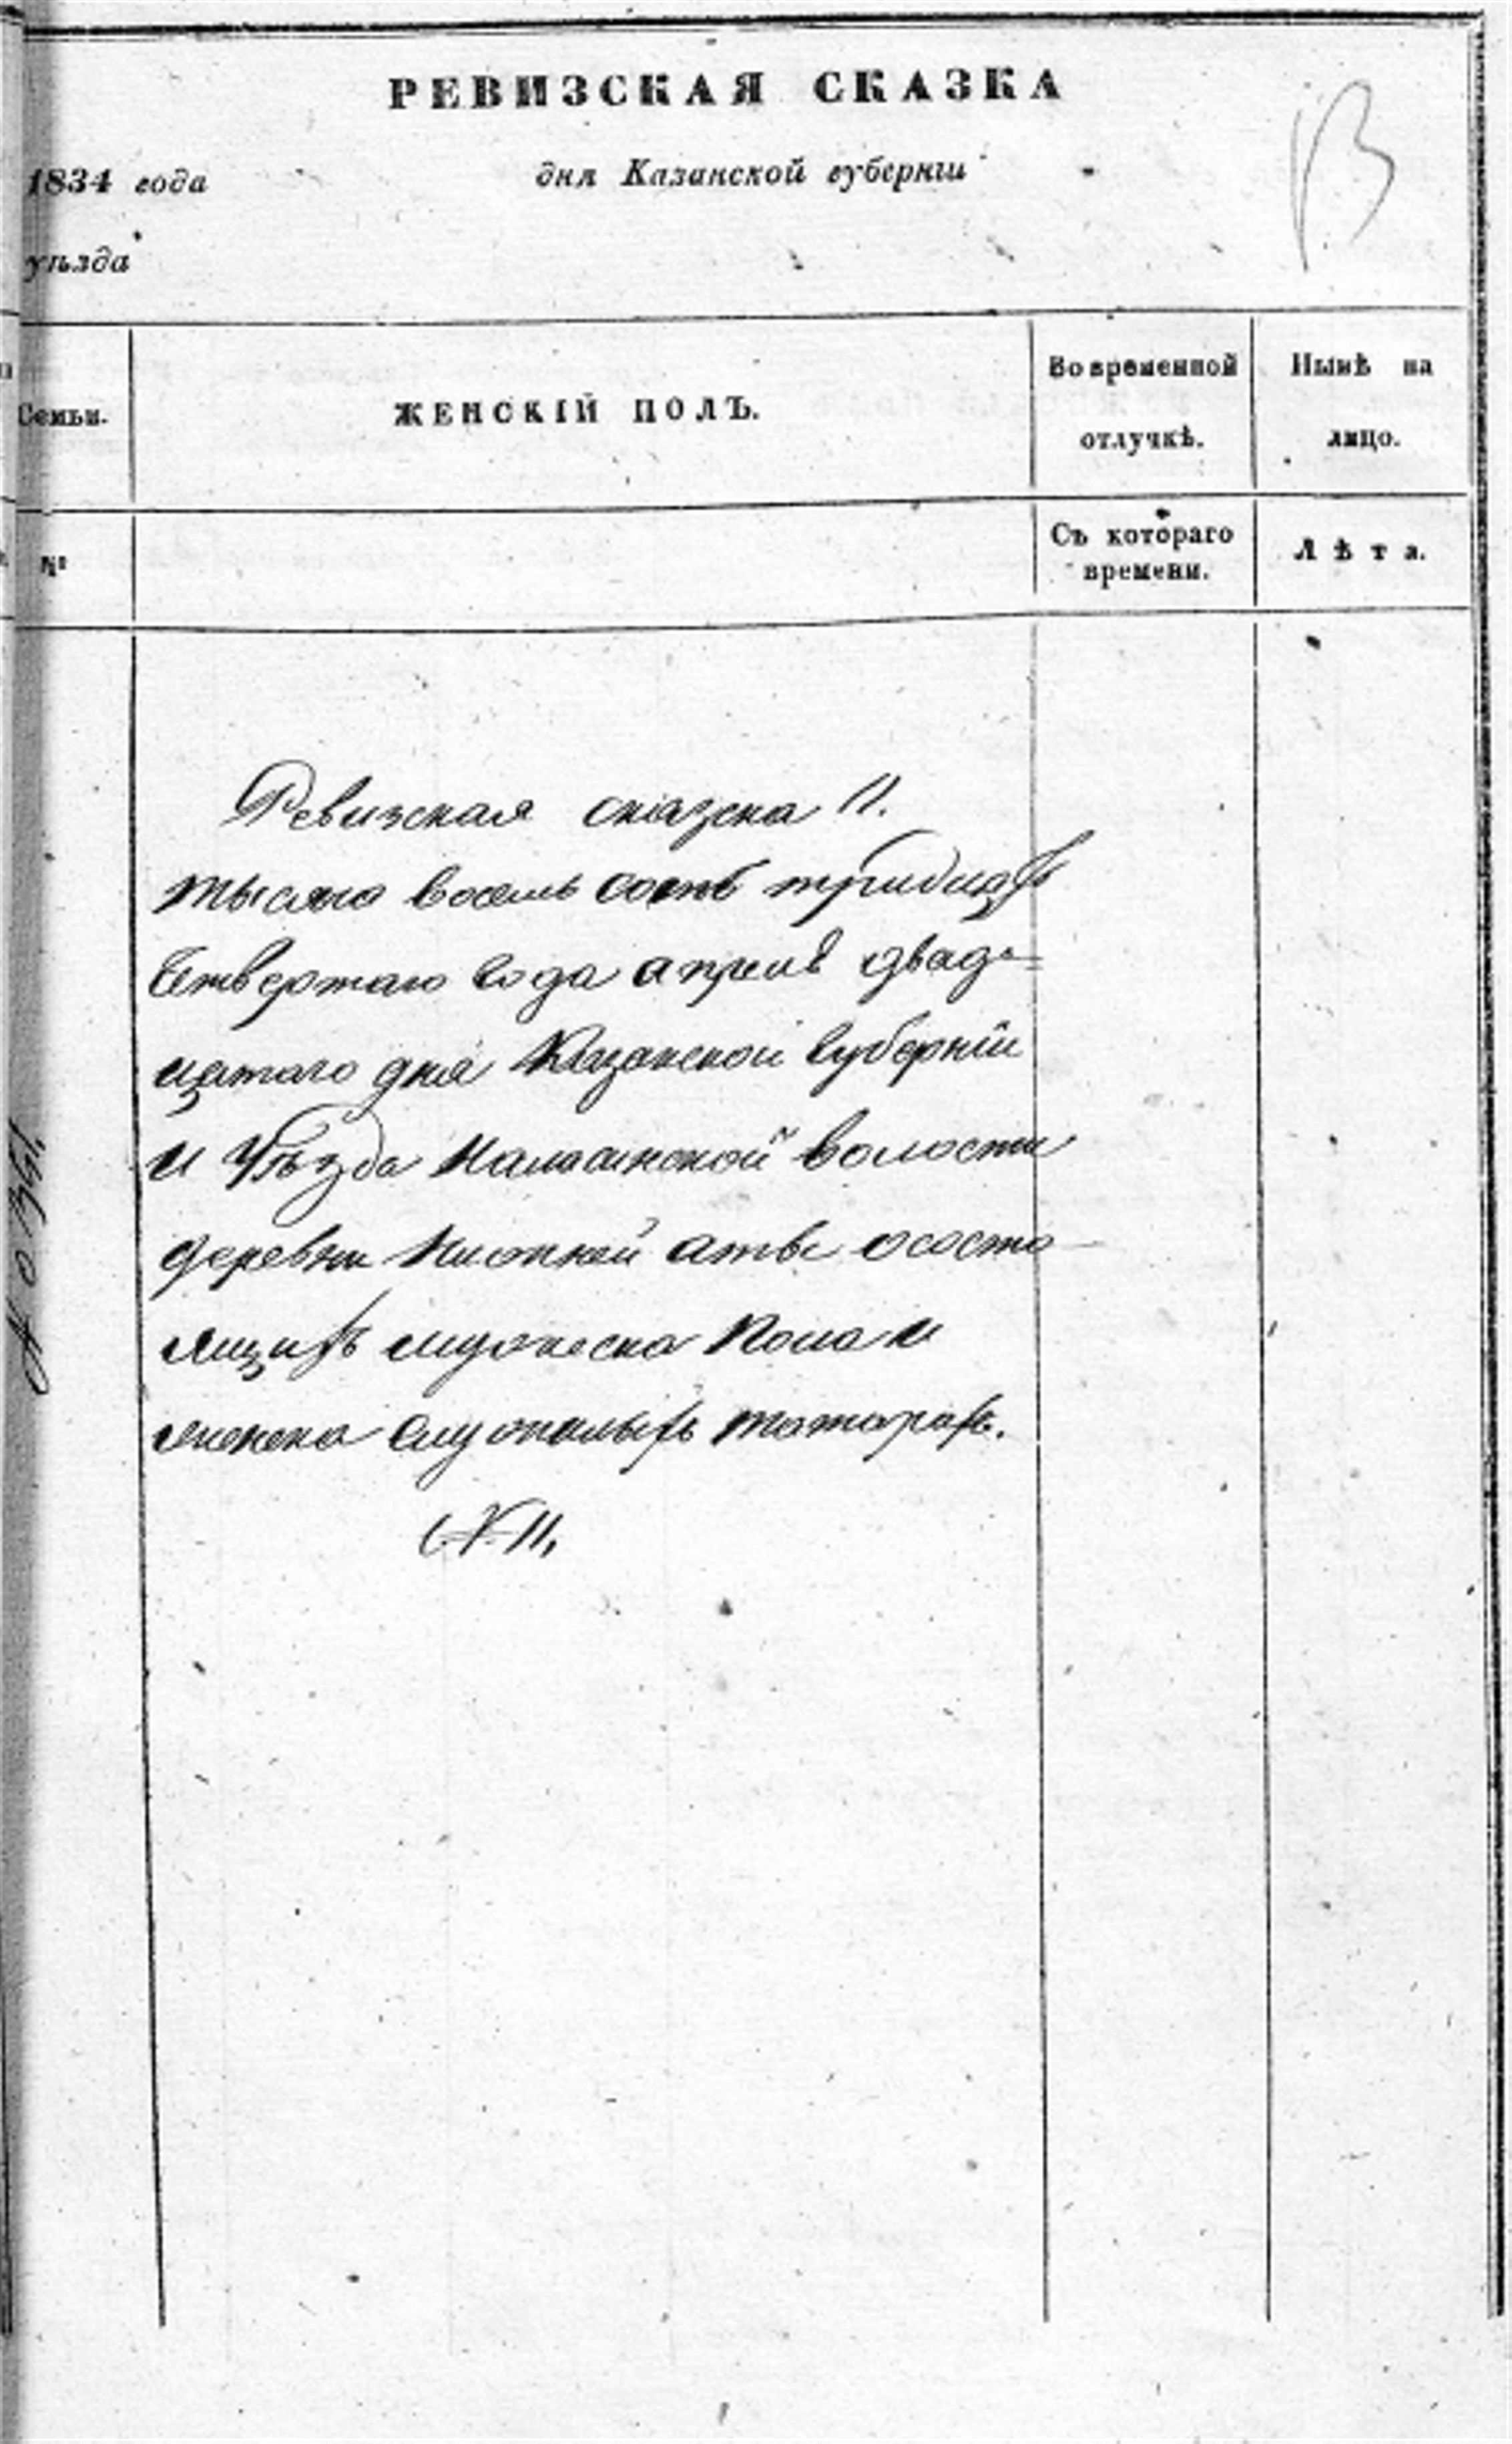 РЕВИЗСКАЯ СКАЗКА
1834 года дня Казанской губерніи
уѣзда
Семьи. ЖЕНСКІЙ ПОЛЪ. Во временной отлучкѣ. Нынѣ на лицо.
№ Съ котораго времени. Лѣта.
Ревизская сказка 11.
тысяча восемь сотъ тридцать
четвертаго года апреля двад-
цатаго дня Казанской губерніи
и Уѣзда волости
деревни Нижней аты ососто
ящихъ мужеска пола и
женска служилыхъ татарахъ.
№ 11,